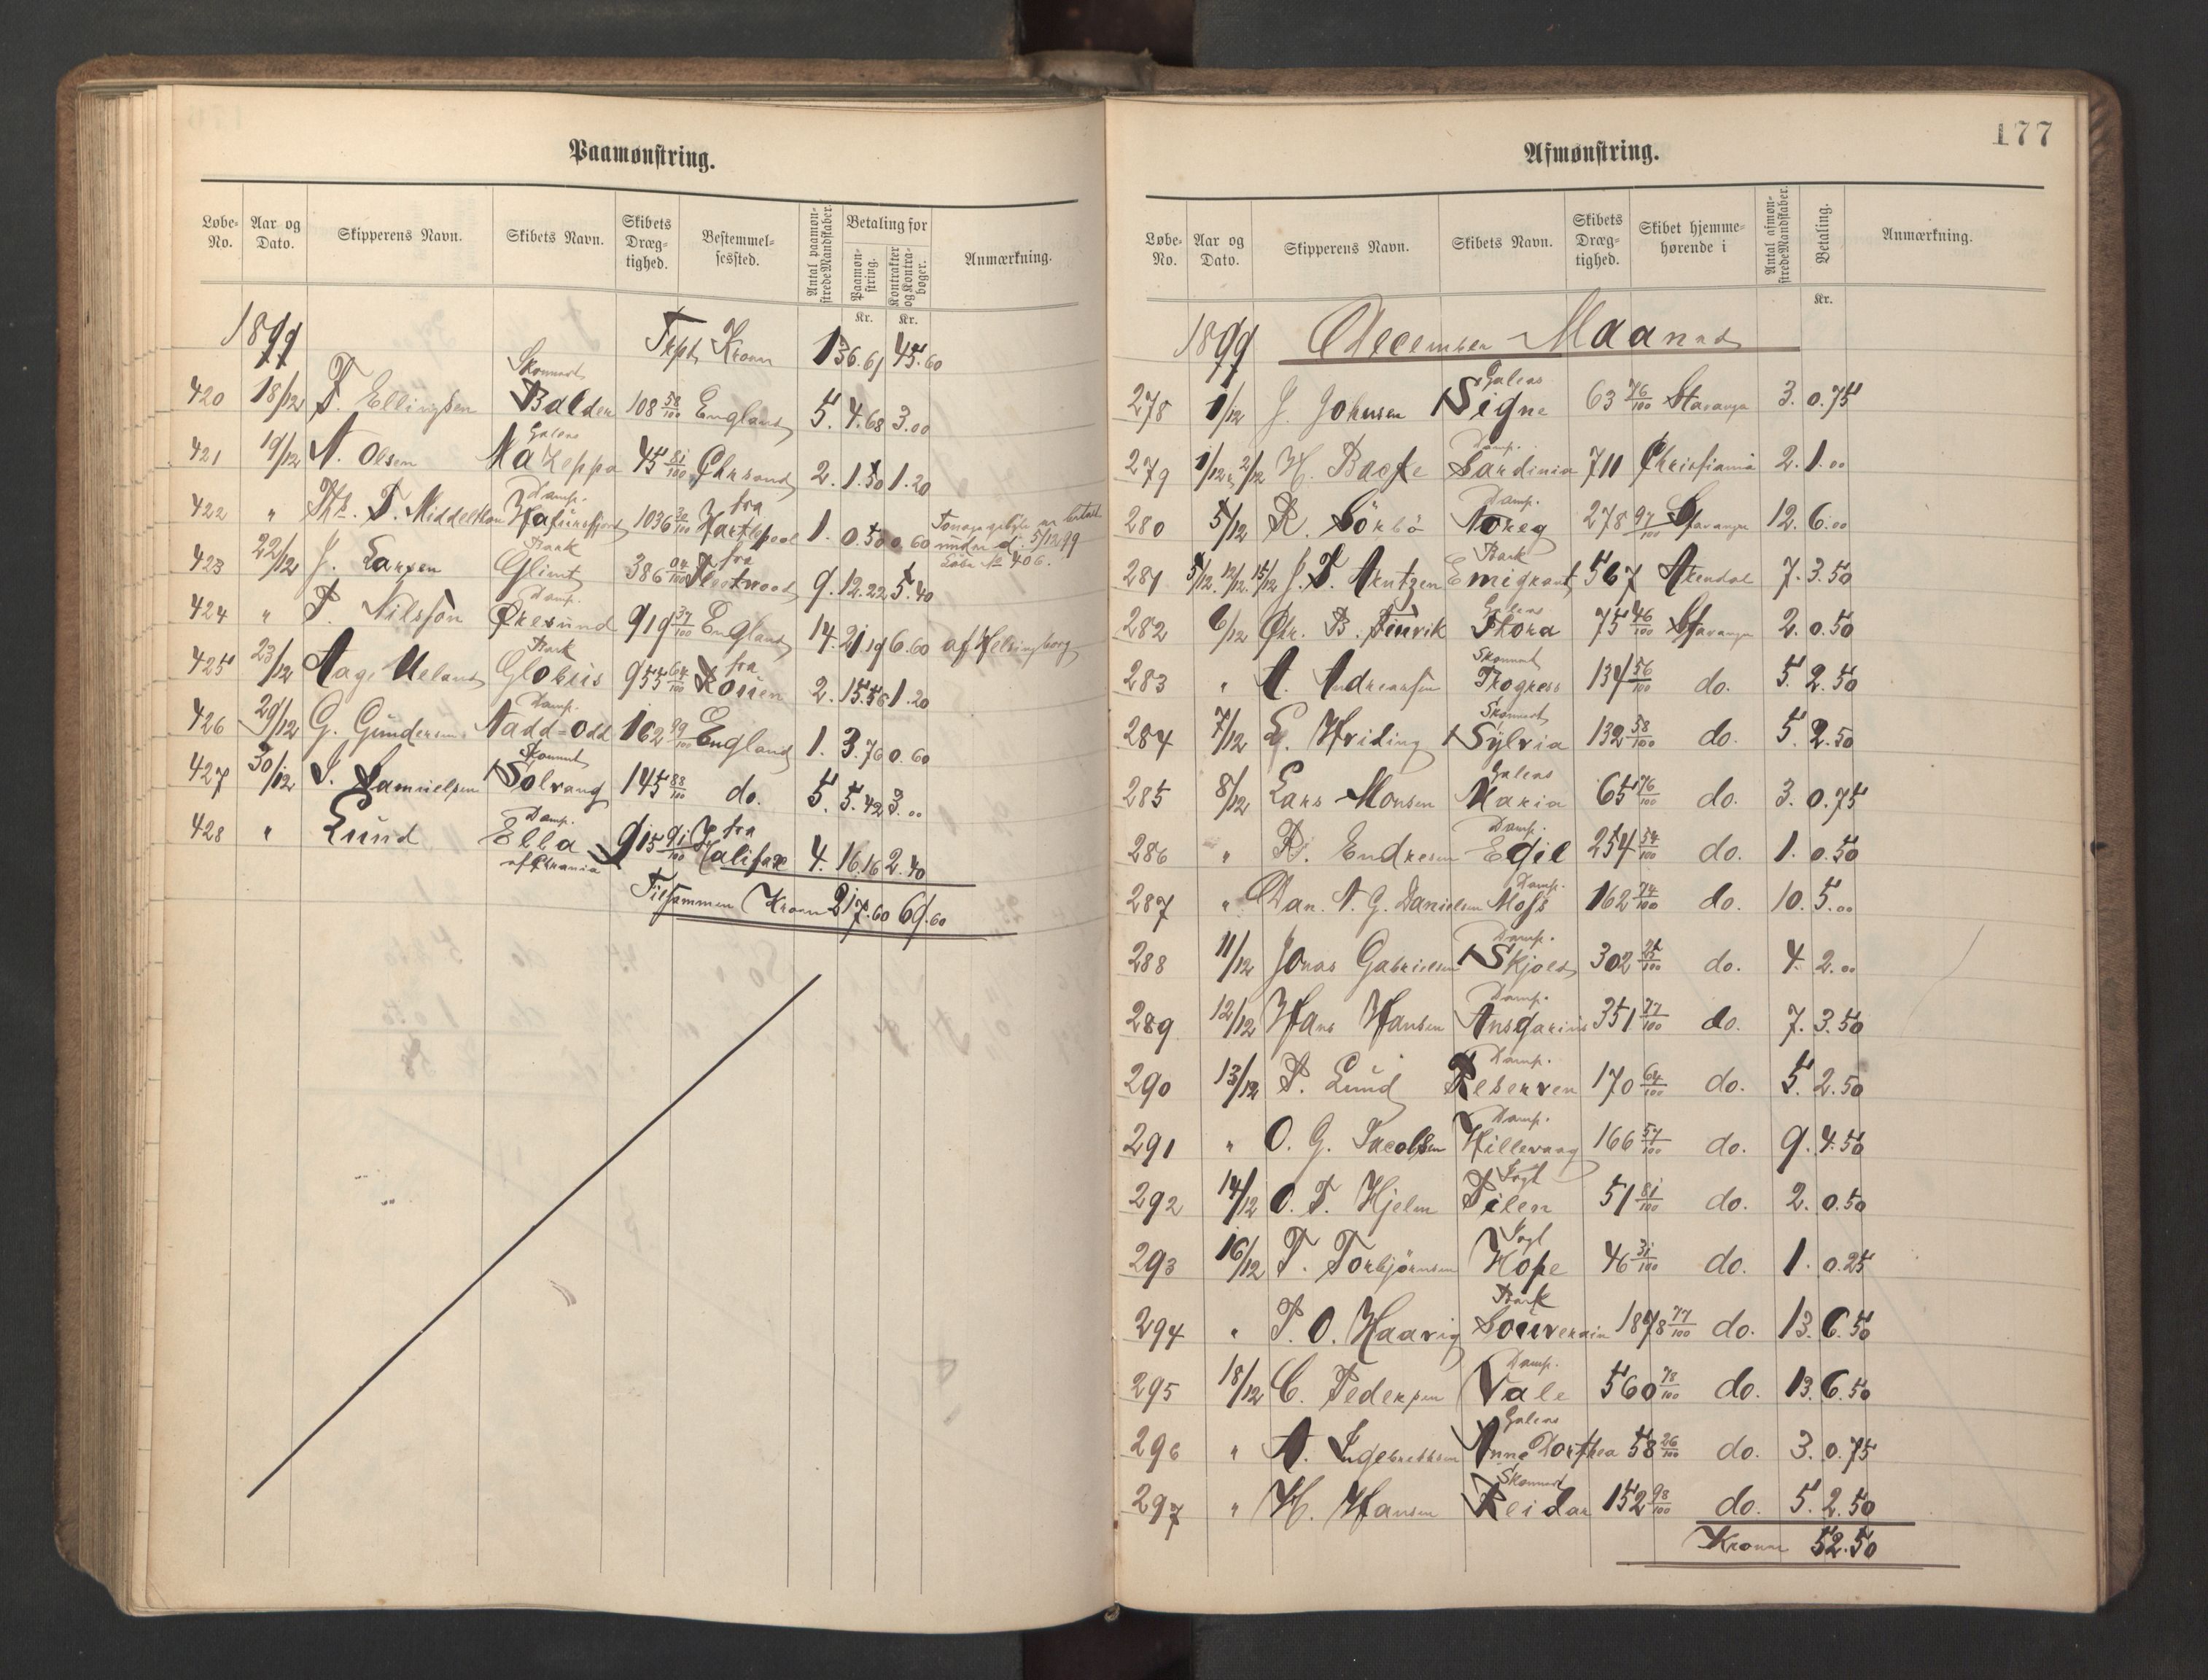 Paamønstring.
Løbe-No. Aar og Dato. Skipperens Navn. Skibets Navn. Skibets Dræg-tighed. Bestemmel-sessted. Antal paamøn-strede Mandskaber. Betaling for Paamøn-string. Kontrakter og Kontra-bøger. Anmærkning.
Kr. Kr.
1899 Trpt Kroner 136.61 45.60
420 18/12 T. Ellingsen Skonnert Balder 108 58/100 England 5. 4.68 3.00
421 19/12 A. Olsen Galeas Mazeppa 45 81/100 Chrsand 2. 1.50 1.20
422 " Ths. T. Middelthon Damp. Hafursfjord 1036 30/100 fra Hartlepool 1. 0.50 0.60 Tonageafgift er betalt under d: 5/12 99 Løbe No 406.
423 22/12 J. Larsen Bark Glimt 386 04/100 fra Fleetwood 9. 12.22 5.40
424 " P. Nilsson Damp. Øresund 919 37/100 England 14. 21.19 6.60 af Helsingborg
425 23/12 Aage Ueland Bark Globus 955 64/100 fra Rouen 2. 15.58 1.20
426 29/12 G. Gundersen Damp. Nadd-Odd 162 99/100 England 1. 3.76 0.60
427 30/12 S. Samuelsen Skonnert Solvang 145 88/100 do. 5. 5.42 3.00
428 " Lund Damp. Ella af Chrania 915 91/100 fra Halifax 4. 16.16 2.40
Tilsammen Kroner 217.60 69.60
177
Afmønstring.
Løbe-No. Aar og Dato. Skipperens Navn. Skibets Navn. Skibets Dræg-tighed. Skibet hjemme-hørende i Antal afmøn-strede Mandskaber. Betaling. Anmærkning.
Kr.
1899 December Maaned
278 1/12 J. Johnsen Galeas Signe 63 76/100 Stavanger 3. 0.75
279 1/12, 2/12 H. Bache Damp. Sardinia 711 Christiania 2. 1.00
280 5/12 R. Sörbö Damp. Noreg 278 97/100 Stavanger 12. 6.00
281 5/12. 12/12. 15/12 J. T. Arntzen Bark Emigrant 567 Arendal 7. 3.50
282 6/12 Chr. B. Galeas Thora 75 46/100 Stavanger 2. 0.50
283 " A. Andreassen Skonnert Progress 134 56/100 do. 5. 2.50
284 7/12 E. Hviding Skonnert Sylvia 132 58/100 do. 5. 2.50
285 8/12 Lars Monsen Galeas Maria 65 76/100 do. 3. 0.75
286 " B. Endresen Damp. Egil 254 54/100 do. 1. 0.50
287 " Dan. A. G. Danielsen Damp. Moss 162 74/100 do. 10. 5.00
288 11/12 Jonas Gabrielsen Damp. Skjold 302 25/100 do. 4. 2.00
289 12/12 Hans Hansen Damp. Ansgarius 351 77/100 do. 7. 3.50
290 13/12 P. Lund Damp. Reserven 170 64/100 do. 5. 2.50
291 " O. G. Jacobsen Damp. Hillevaag 166 57/100 do. 9. 4.50
292 14/12 O. T. Hjelm Jagt Pilen 51 81/100 do. 2. 0.50
293 16/12 T. Torbjörnsen Jagt Hope 46 31/100 do. 1. 0.25
294 " P. O. Haavig Bark Souverain 1878 77/100 do. 13. 6.50
295 18/12 C. Pedersen Damp. Vale 560 78/100 do. 13. 6.50
296 " A. Ingebretsen Galeas Anne Dorthea 58 26/100 do. 3. 0.75
297 " H. Hansen Skonnert Reidar 152 98/100 do. 5. 2.50
Kroner 52.50